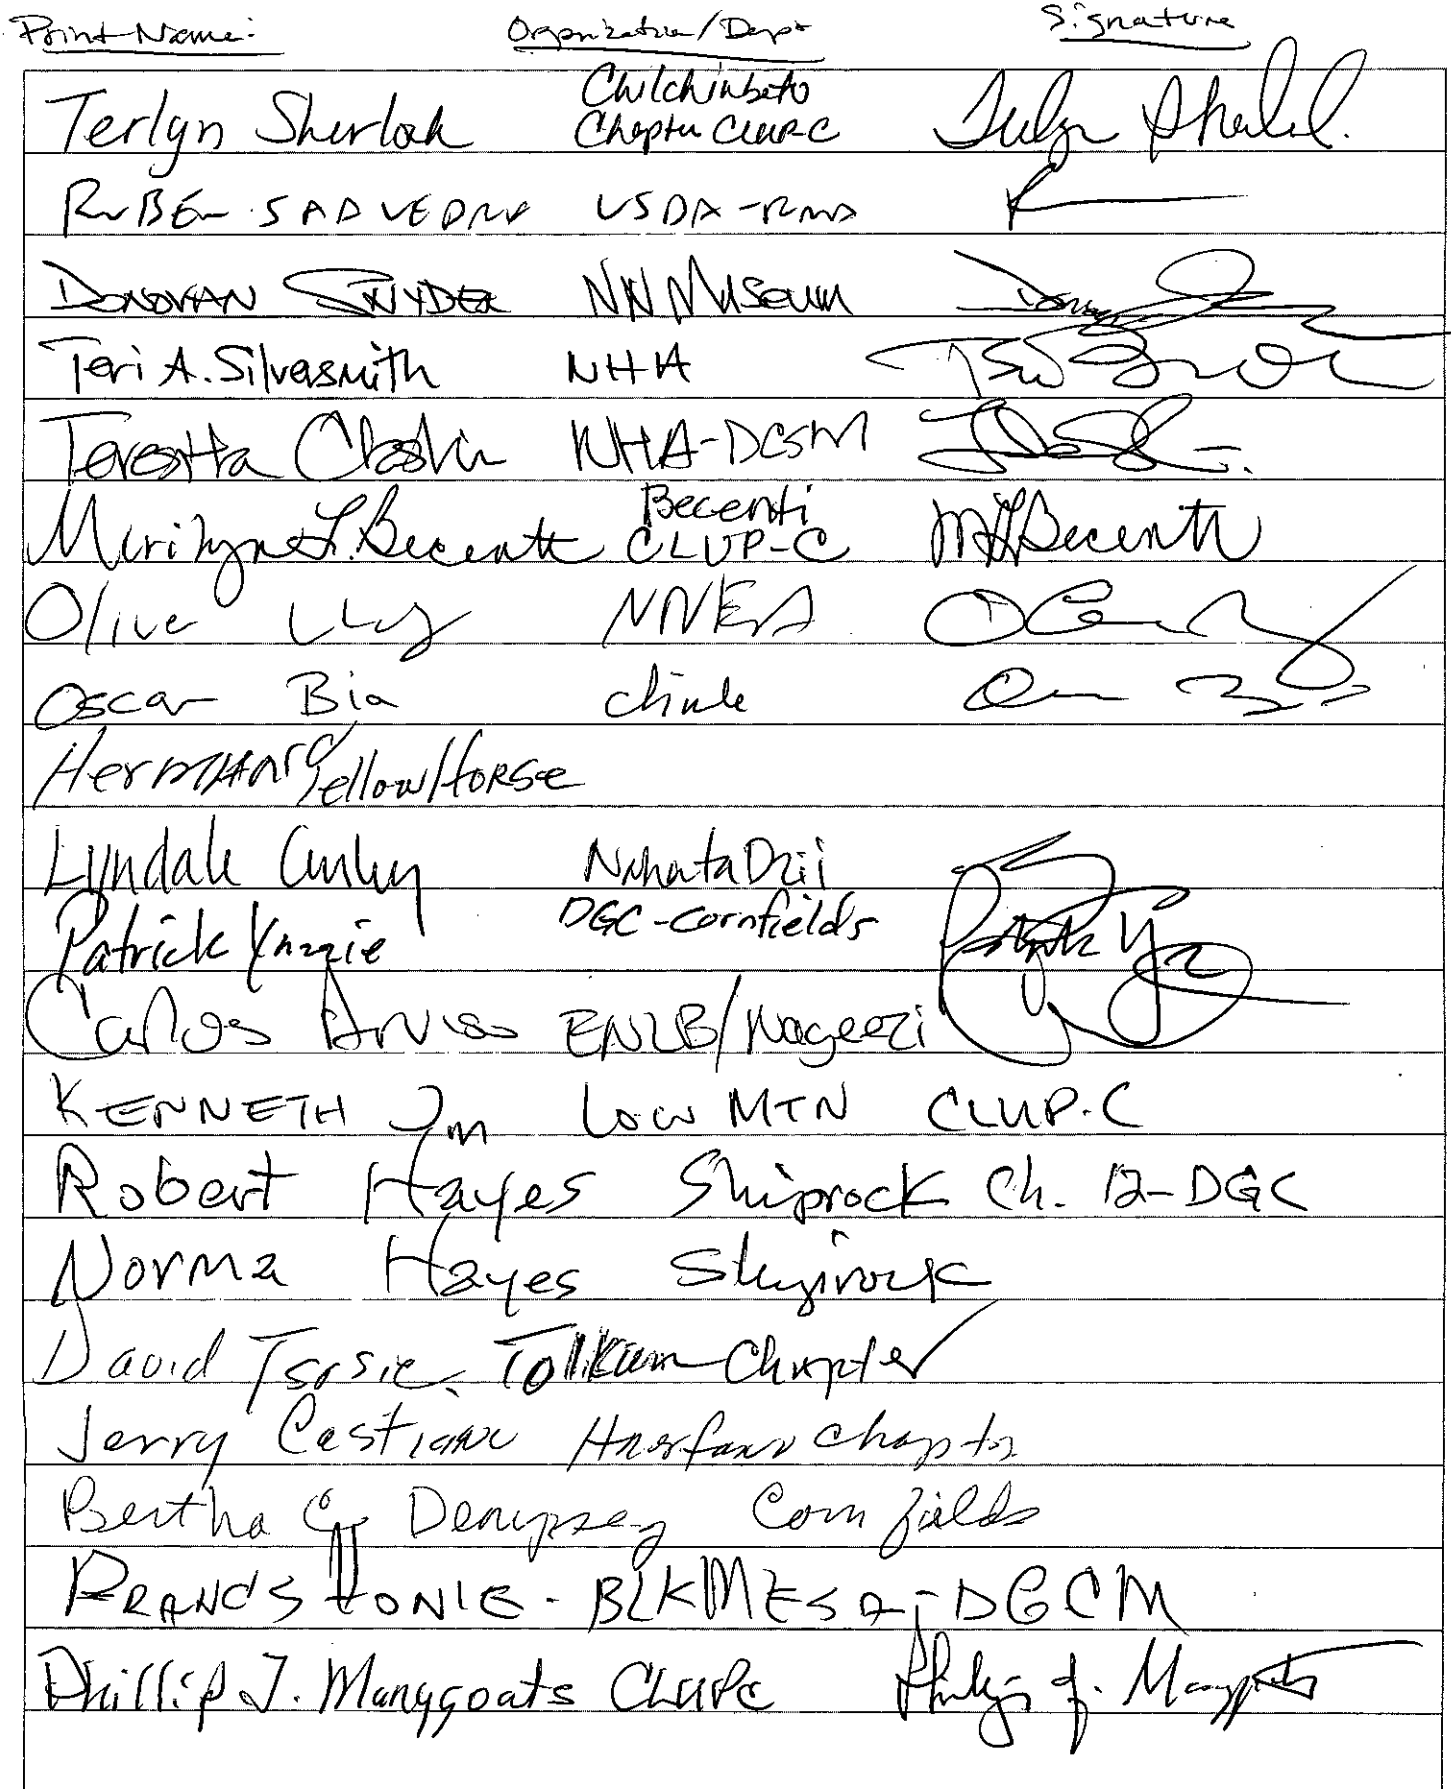 Print Name: Organization/Dept Signature
Chilchinbeto
Terlyn Sherlock Chapter CLUPC
RUBEN SAAVEDRA USDA-RMA
DONOVAN SNYDER NN Museum
Teri A. Silversmith NHA
Teresita Clashin NHA-DCSM
Becenti
Marilyne L. Becenti CLUP-C MLBecenti
Olive NNEPA
Oscar Bia chinle
Herman YellowHorse
Lyndale Curley NahataDzii
Patrick Yazzie DGC-Cornfields
Carlos Arviso ENLB/Nageezi
KENNETH Jm Low MTN CLUP-C
Robert Hayes Shiprock Ch. 12-DGC
Norma Hayes Shiprock
David Tsosie. Tolikan Chapter
Jerry Castiane Huerfano Chapter
Bertha C Dempsey Cornfields
FRANCS HONIE - BLKMESA-DGCM
Phillip J. Manygoats CLUPC Phillip J. Manygoats